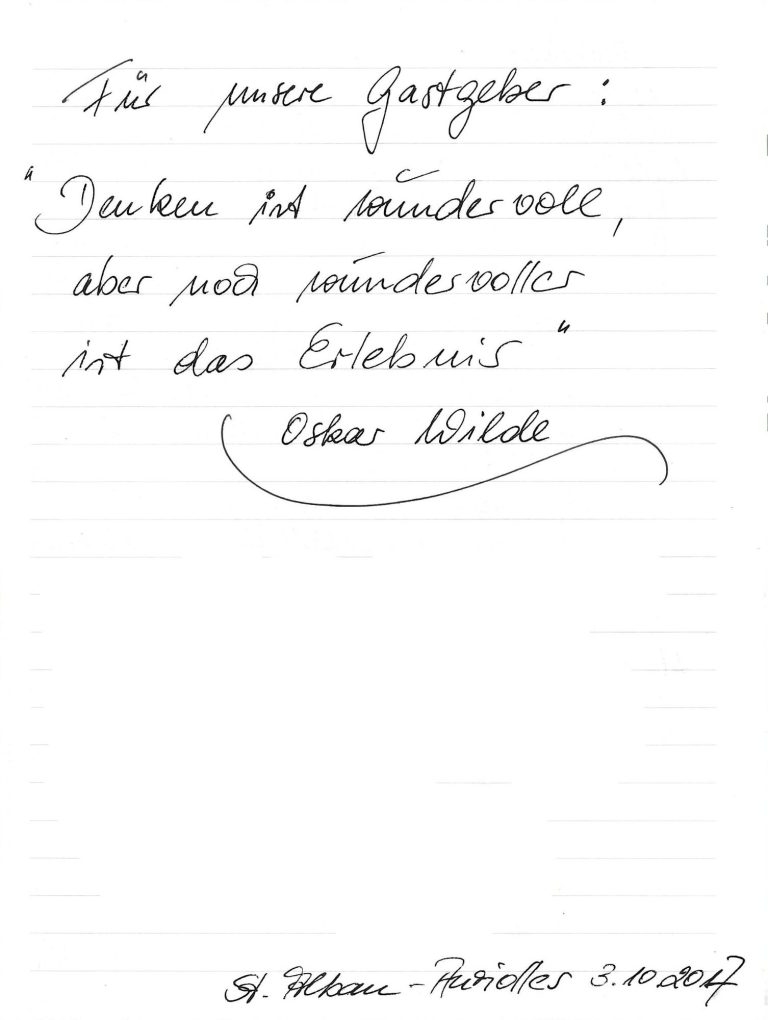 Für unsere Gastgeber :
"Denken ist wundervoll,
aber noch wundervoller
ist das Erlebnis"
Oskar Wilde
St. Alban - 3.10.2017